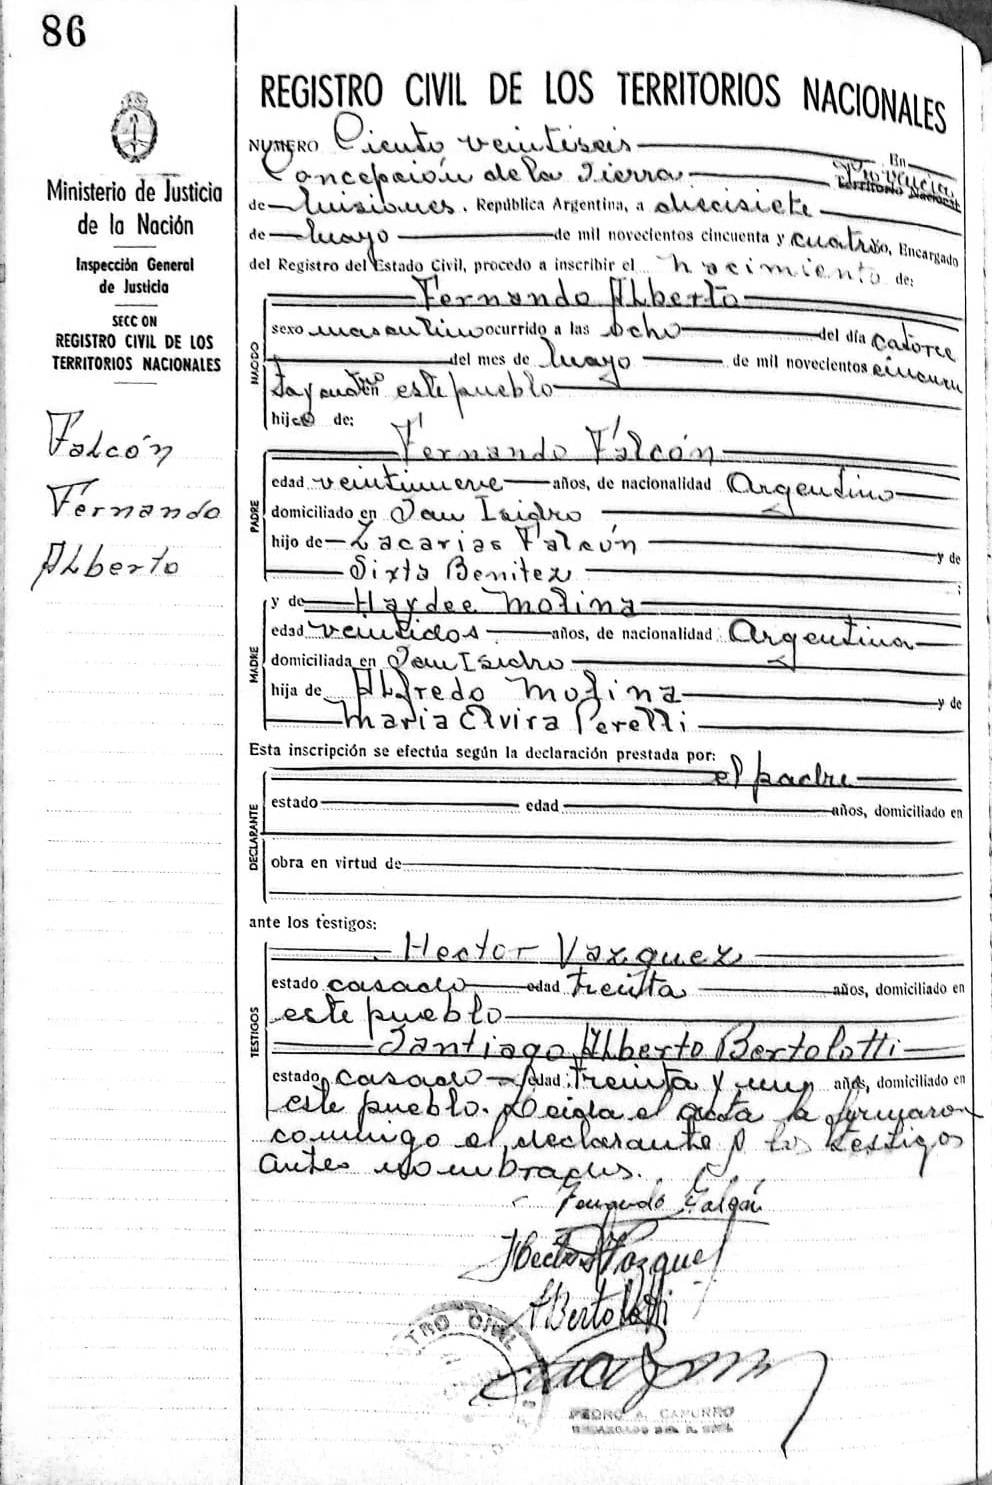 86
REGISTRO CIVIL DE LOS TERRITORIOS NACIONALES
Ministerio de Justicia
de la Nación
Inspección General
de Justicia
SECC ON
REGISTRO CIVIL DE LOS
TERRITORIOS NACIONALES
Falcón
Fernando
Alberto
NUMERO Ciento veintiseis En
Concepción de la Sierra Provincia Territorio Nacional
de Misiones. República Argentina, a diecisiete
de Mayo de mil novecientos cincuenta y cuatro, Encargado
del Registro del Estado Civil, procedo a inscribir el nacimiento de:
NACIDO
Fernando Alberto
sexo masculino ocurrido a las ocho del día catorce
del mes de Mayo de mil novecientos cincuen
ta y cuatro en este pueblo
hijo de:
PADRE
Fernando Falcón
edad veintinueve años, de nacionalidad Argentino
domiciliado en San Isidro
hijo de Zacarias Falcón y de
Sixta Benitez ;
MADRE
y de Haydee Molina
edad veintidos años, de nacionalidad Argentina
domiciliada en San Isidro
hija de Alfredo Molina y de
Maria Elvira Perelli
Esta inscripción se efectúa según la declaración prestada por:
el padre
DECLARANTE
estado edad años, domiciliado en
obra en virtud de
ante los testigos:
TESTIGOS
Hector Vazquez
estado casado edad treinta años, domiciliado en
este pueblo
Santiago Alberto Bertolotti
estado casado edad treinta y un años, domiciliado en
este pueblo. Leida el acta la firmaron
conmigo el declarante y los testigos
antes nombrados.
Fernando Falcón
Hector Vazquez
Bertolotti
TRO CIVIL
PEDRO A. CAPURRO
ENCARGADO DEL R. CIVIL